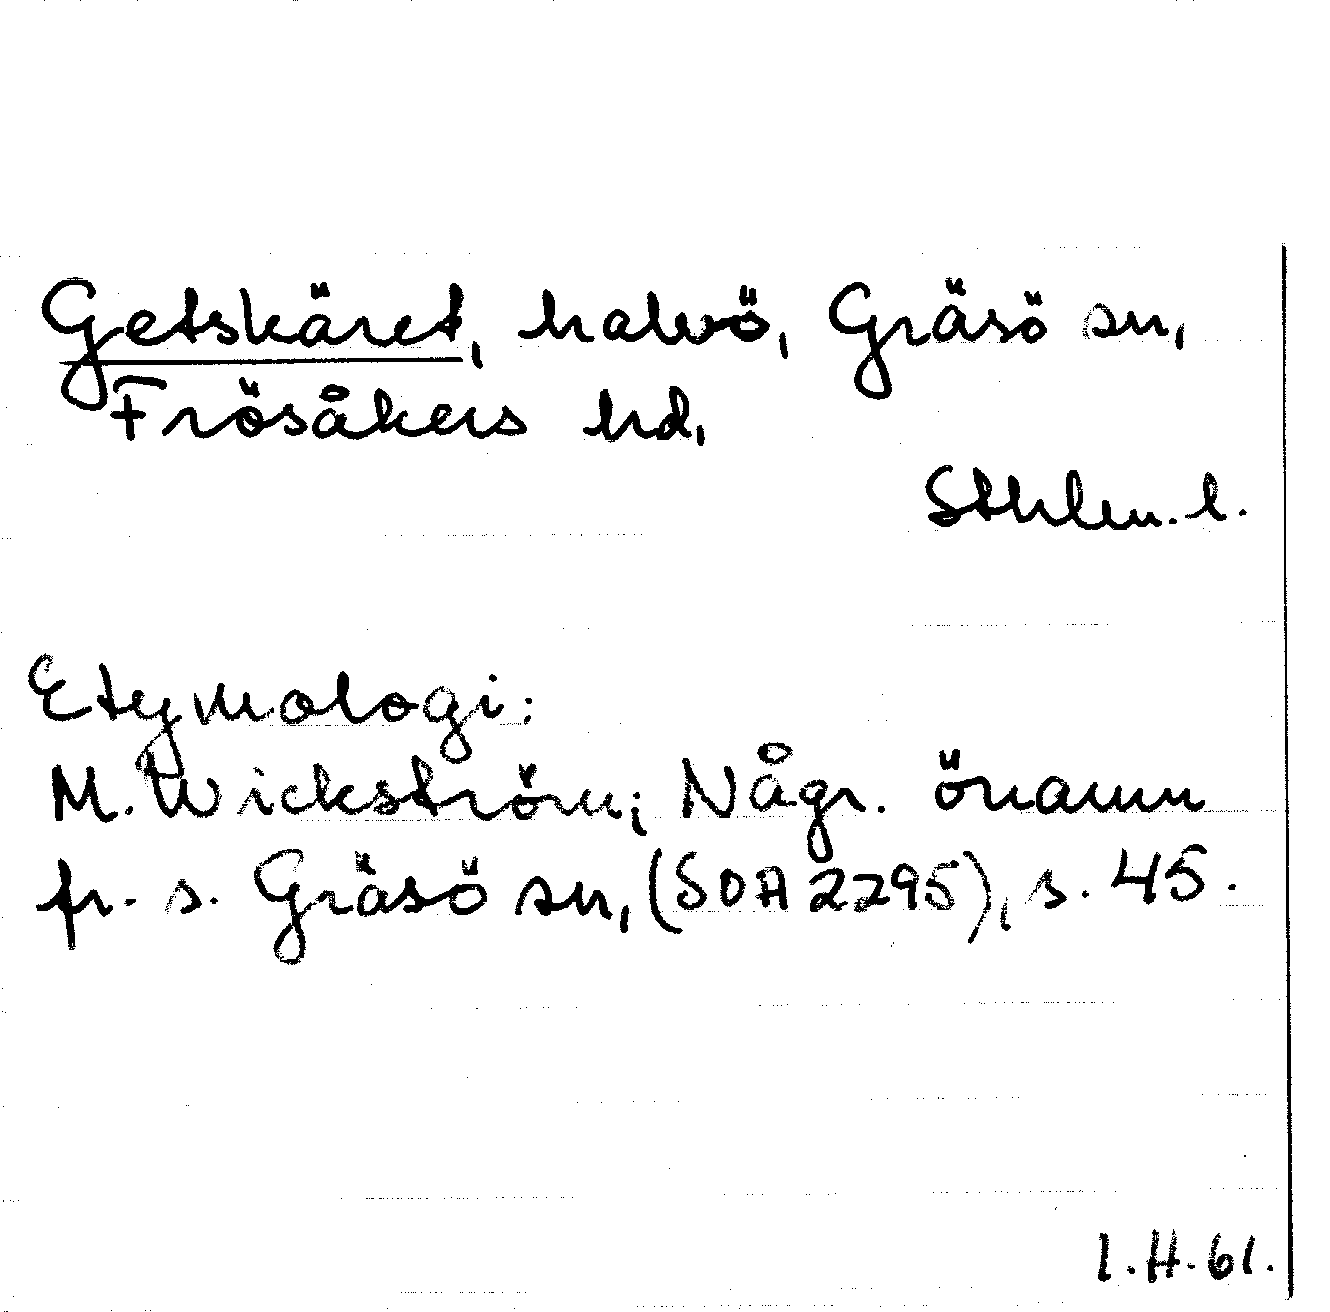 Getskäret, halvö, Gräsö sn,
Frösåkers hd,
Sthlm. l.
Etymologi:
M. Wickström; Någr. önamn
fr. s. Gräsö sn, (SOA 2295), s. 45.
I.H.61.